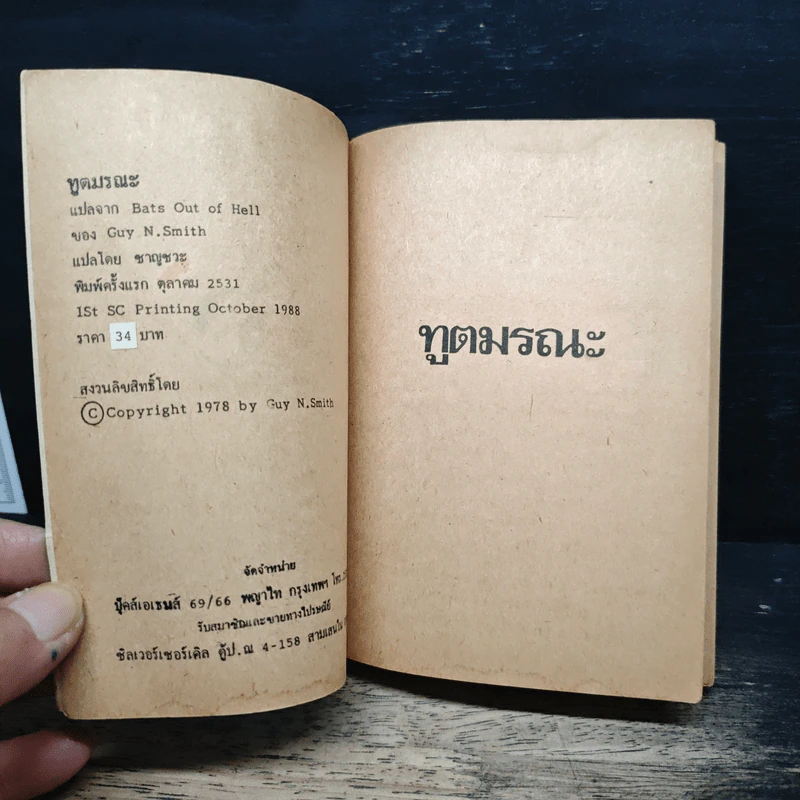 ทูตมรณะ
แปลจาก Bats Out of Hell
ของ Guy N.Smith
แปลโดย ชาญชวะ
พิมพ์ครั้งแรก ตุลาคม 2531
1St SC Printing October 1988
ราคา 34 บาท
สงวนลิขสิทธิ์โดย
©Copyright 1978 by Guy N.Smith
จัดจำหน่าย
บุ๊คส์เอเยนส์ 69/66 พญาไท กรุงเทพฯ โทร.
รับสมาชิกและขายทางไปรษณีย์
ซิลเวอร์เซอร์เคิล ตู้ป.ณ 4-158 สามเสนใน
ทูตมรณะ